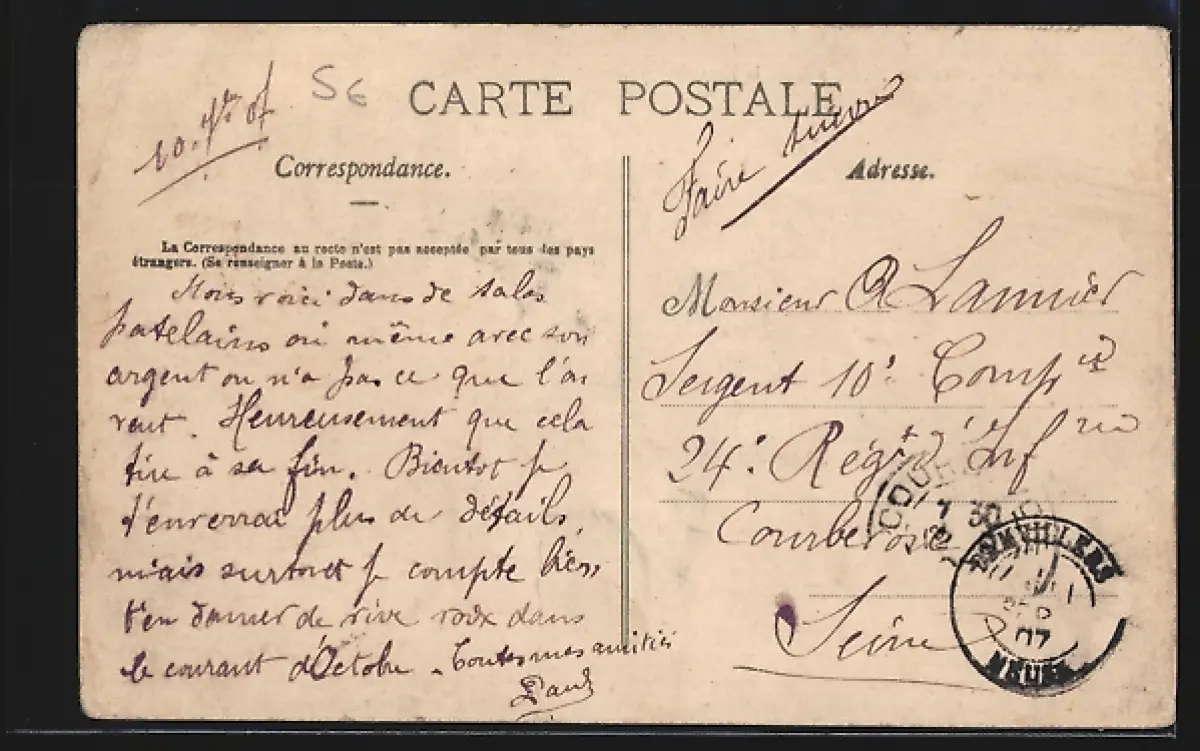 10. 7bre 07
56
CARTE POSTALE
Faire suivre
Correspondance.
Adresse.
La Correspondance au recto n'est pas acceptée par tous les pays
étrangers. (Se renseigner à la Poste.)
Nous voici dans de sales
patelains où même avec son
argent on n'a pas ce que l'on
veut. Heureusement que cela
tire à sa fin. Bientôt je
t'enverrai plus de détails,
mais surtout je compte bien
t'en donner de vive voix dans
le courant d'Octobre. Toutes mes amitiés
Paul
Monsieur Lannier
Sergent 10e Compie
24e. Régt d'Infrie
Courbevoie
Seine
COUR
7 30
07